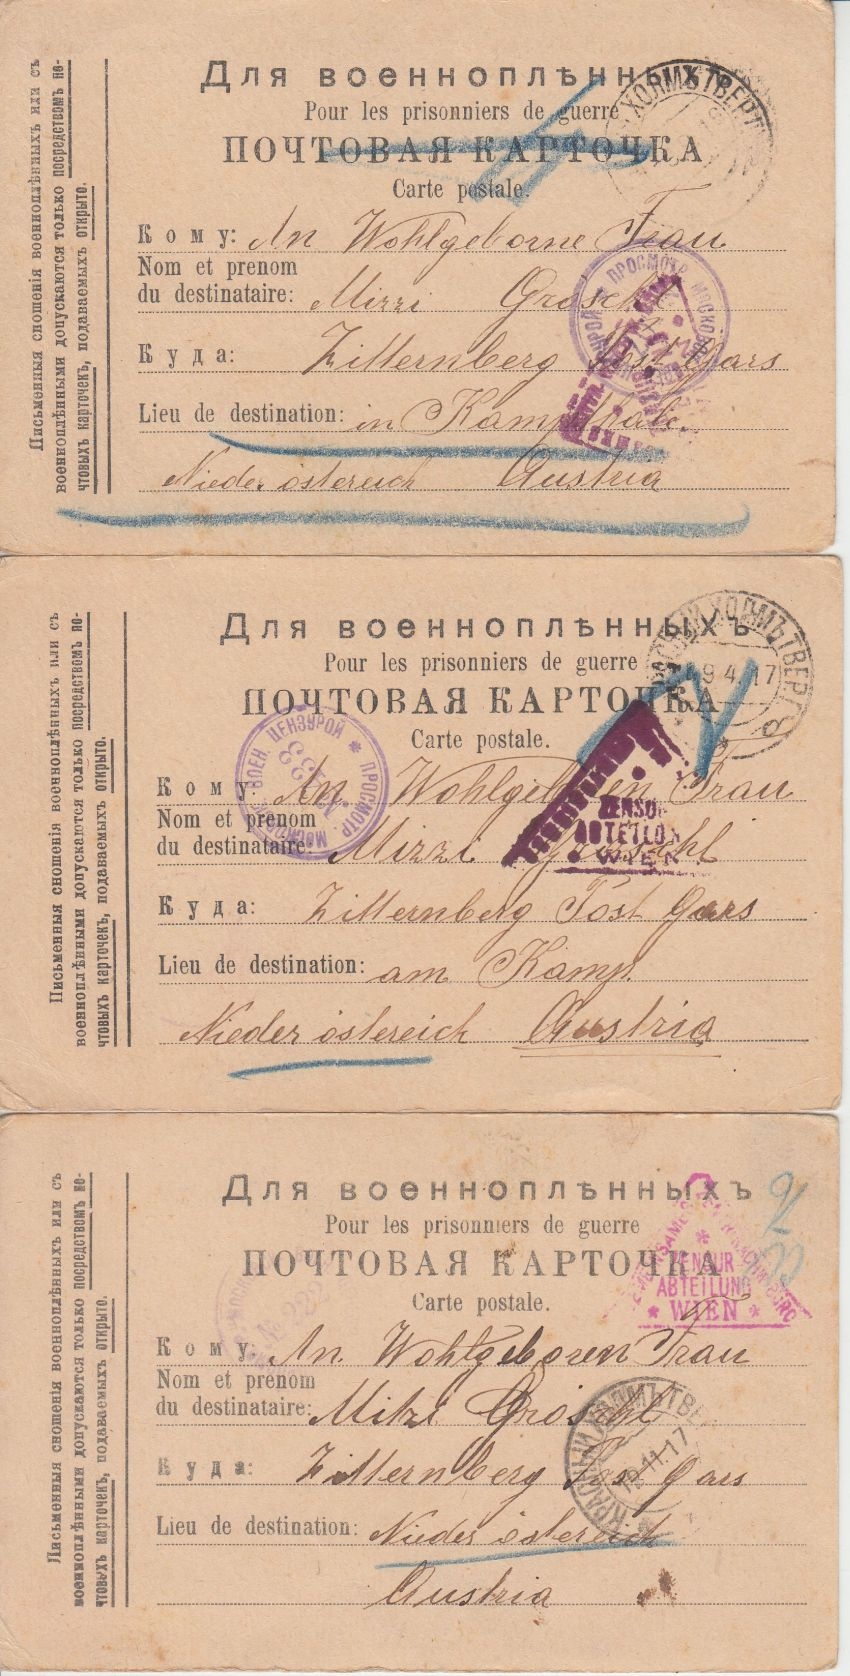 Письменныя сношенія военноплѣнныхъ или съ
военноплѣнными допускаются только посредствомъ по-
чтовыхъ карточекъ, подаваемыхъ открыто.
Для военноплѣнныхъ
Pour les prisonniers de guerre
ПОЧТОВАЯ КАРТОЧКА
Carte postale.
ХОЛМЪ ТВЕР
Кому: An Wohlgeborne Frau
Nom et prenom
du destinataire: Mizzi Gröschl
ПРОСМОТР. МОСКОВСК
Куда: Zitternberg Post Gars
Lieu de destination: in Kampthale
Nieder östereich Austria
Письменныя сношенія военноплѣнныхъ или съ
военноплѣнными допускаются только посредствомъ по-
чтовыхъ карточекъ, подаваемыхъ открыто.
Для военноплѣнныхъ
Pour les prisonniers de guerre
ПОЧТОВАЯ КАРТОЧКА
Carte postale.
ХОЛМЪ ТВЕР
9 4 17
ПРОСМОТР. МОСКОВСК. ВОЕН. ЦЕНЗУРОЙ
Кому: An Wohlgeboren Frau
Nom et prenom
du destinataire: Mizzi Gröschl
ZENSUR
ABTEILUNG
WIEN
Куда: Zitternberg Post Gars
Lieu de destination: am Kamp.
Nieder östereich Austria
Письменныя сношенія военноплѣнныхъ или съ
военноплѣнными допускаются только посредствомъ по-
чтовыхъ карточекъ, подаваемыхъ открыто.
Для военноплѣнныхъ
Pour les prisonniers de guerre
ПОЧТОВАЯ КАРТОЧКА
Carte postale.
ZENSUR
ABTEILUNG
* WIEN *
№ 222
Кому: An Wohlgeboren Frau
Nom et prenom
du destinataire: Mitzi Gröschl
Куда: Zitternberg Post Gars
КРАСНЫЙ ХОЛМЪ ТВЕР
12.11.17
Lieu de destination: Nieder östereich
Austria